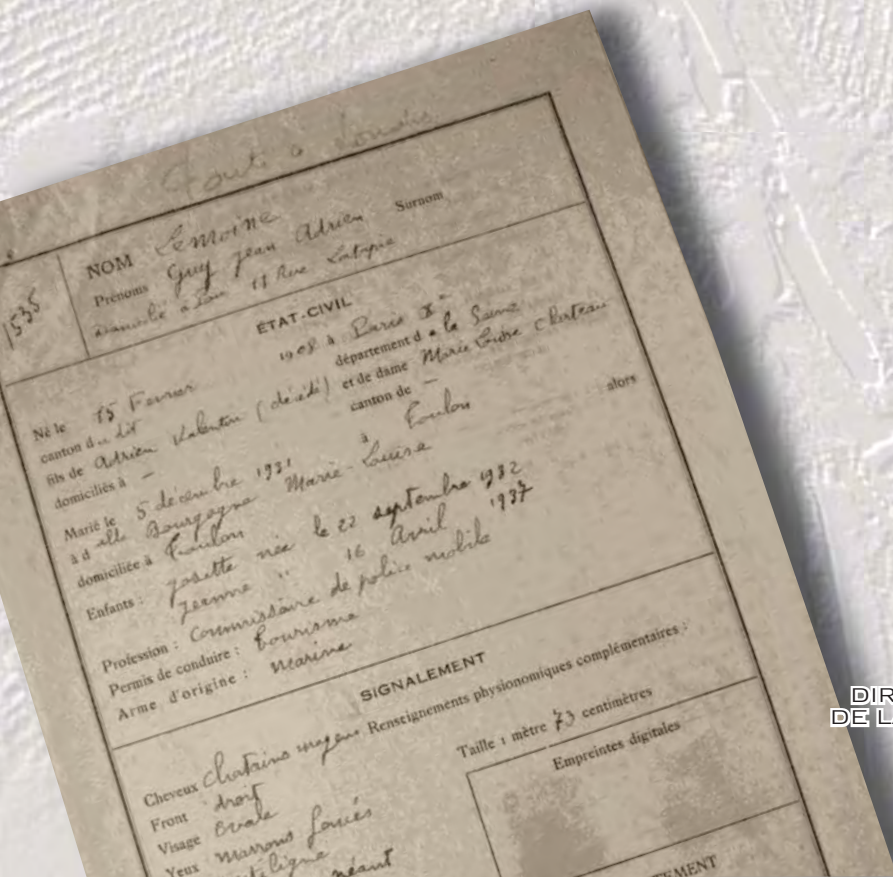 1535
NOM Lemoine
Prénoms Guy Jean Adrien Surnom
domicilié à 11 Rue
ÉTAT-CIVIL
Né le 15 Fevrier 1908 à Paris X
canton du dit département d e la Seine
fils de Adrien Valentin (décédé) et de dame Marie Louise
domiciliés à — canton de —
Marié le 5 décembre 1931 à Toulon
à d elle Bourgogne Marie-Louise alors
domiciliée à Toulon
Enfants : Josette née le 22 septembre 1932
Jeanne " 16 Avril 1937
Profession : Commissaire de police mobile
Permis de conduire : tourisme
Arme d'origine : marine
SIGNALEMENT
Cheveux Chatains moyens Renseignements physionomiques complémentaires :
Front droit Taille 1 mètre 73 centimètres
Visage Ovale Empreintes digitales
Yeux marrons foncés
néant
DIR
DE LA